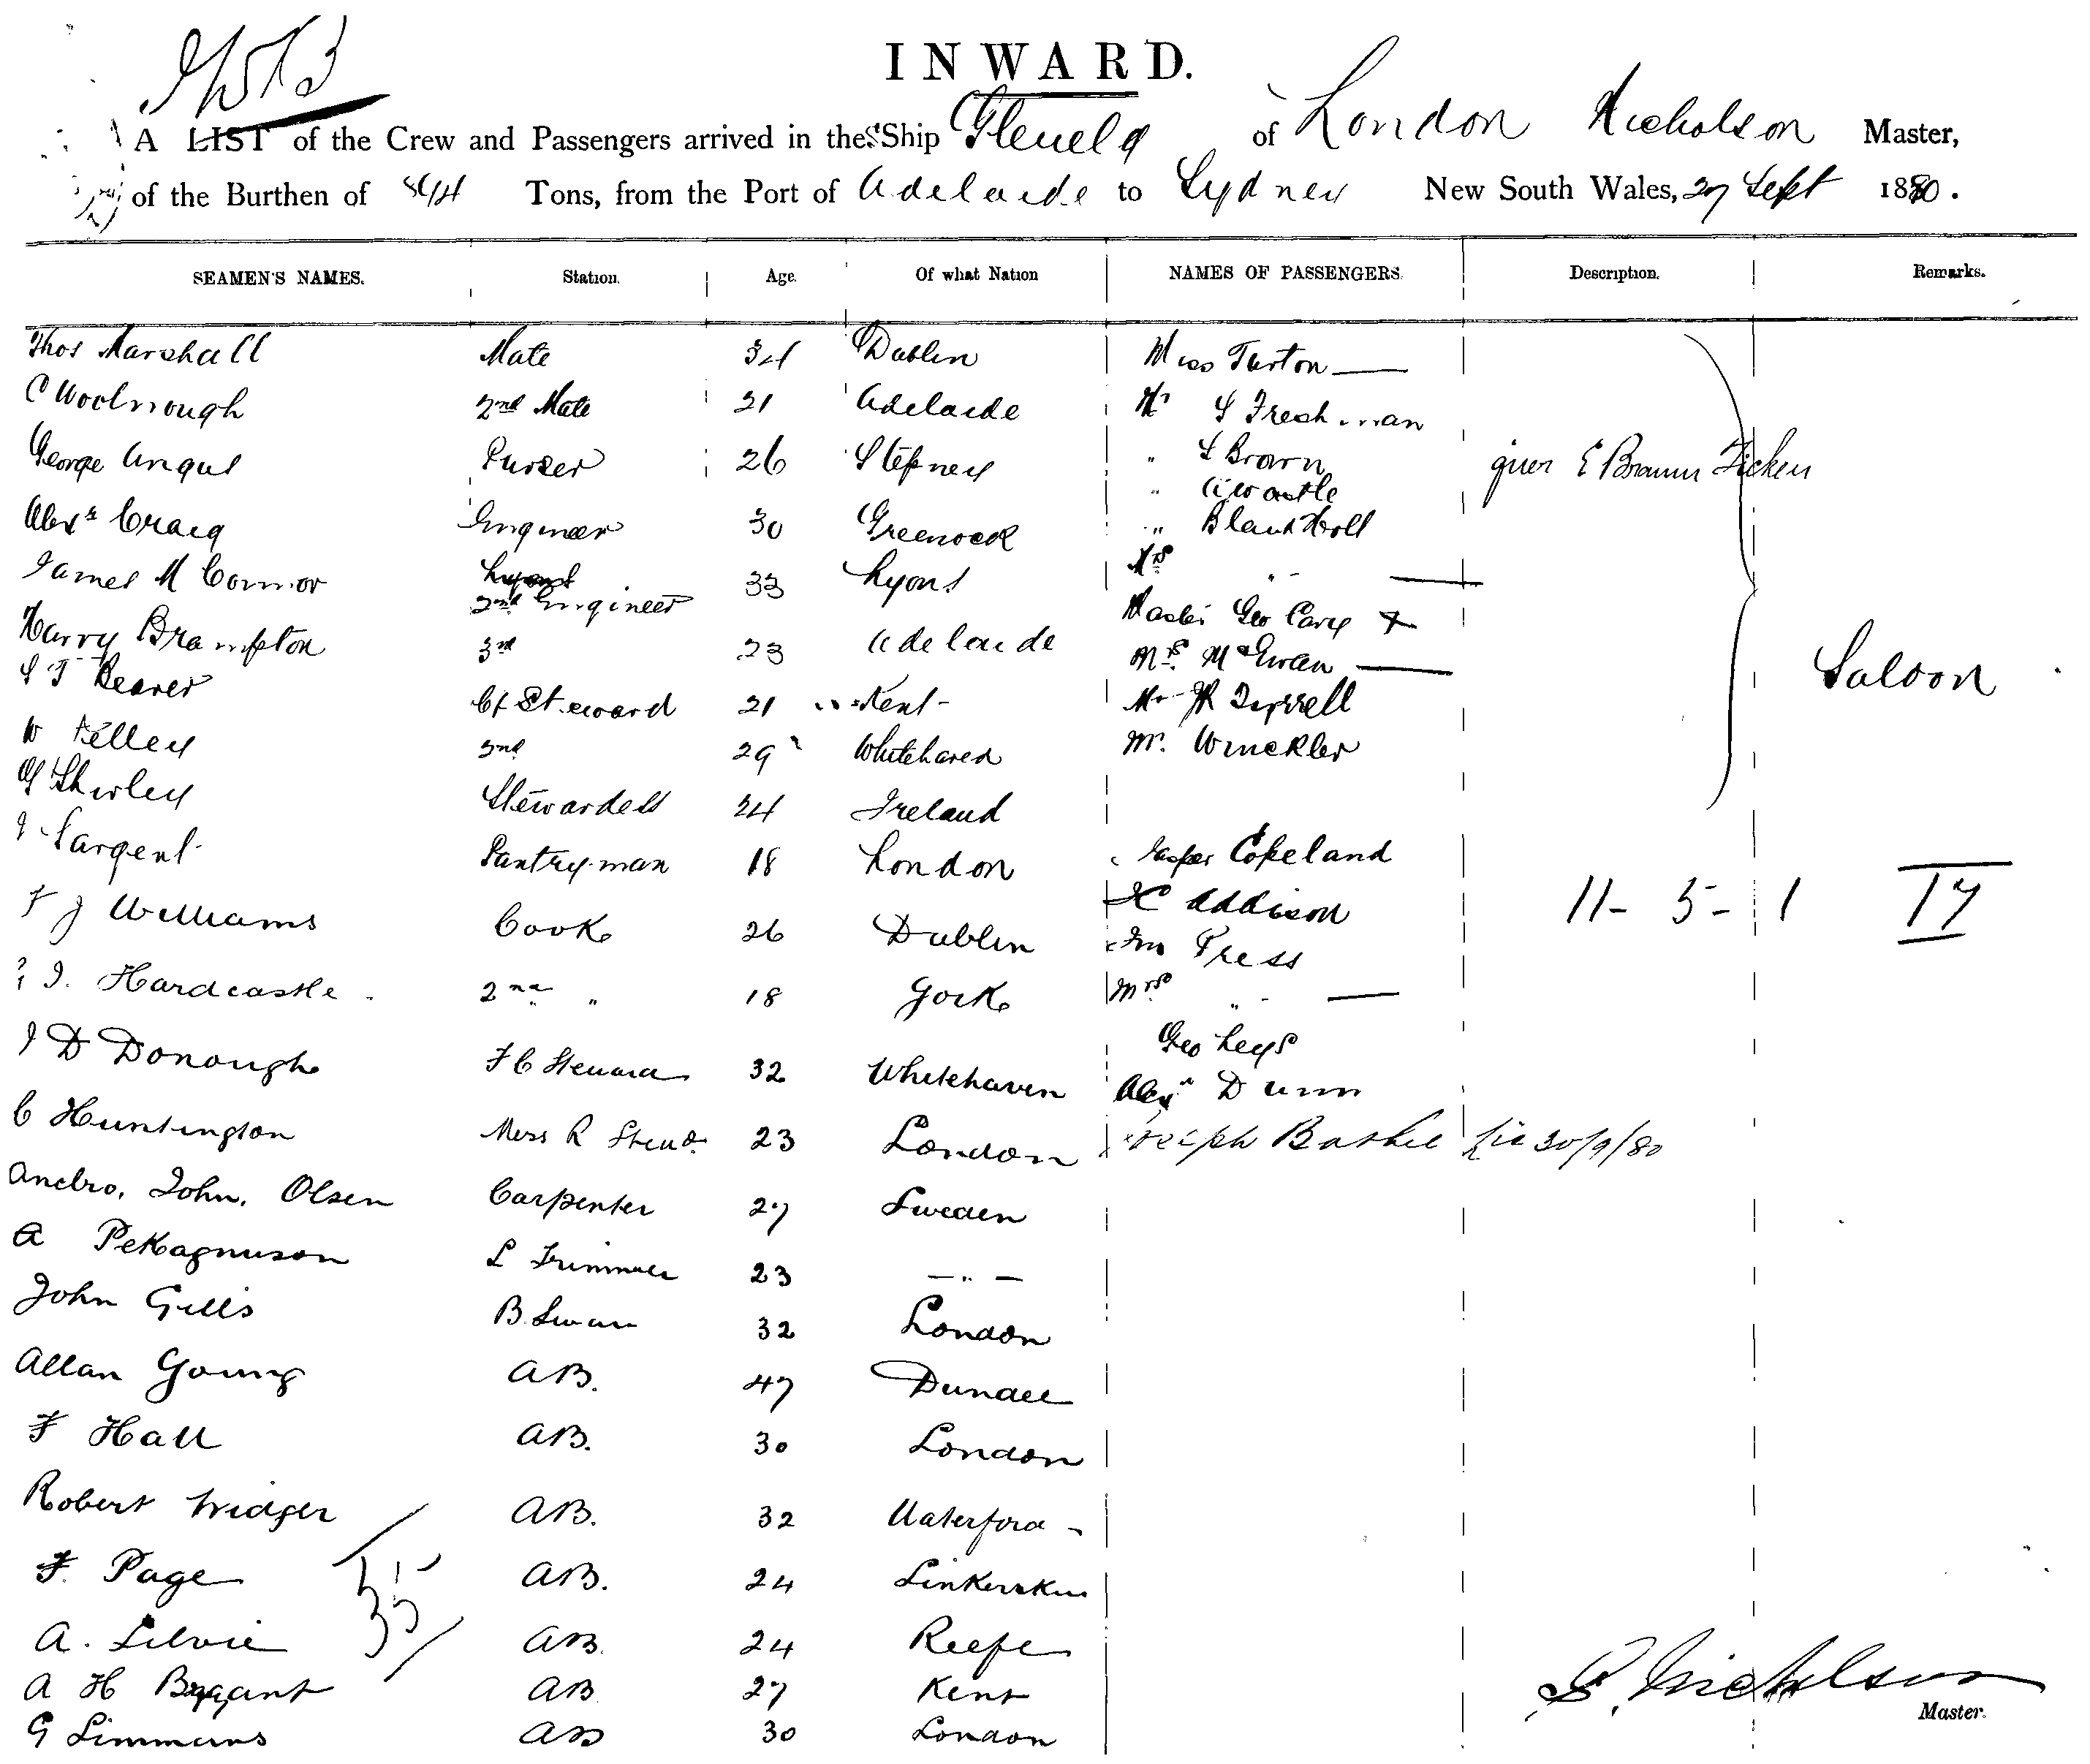 INWARD.
A LIST of the Crew and Passengers arrived in the SShip Glenelg of London Nicholson Master,
of the Burthen of Tons, from the Port of Adelaide to Sydney New South Wales, 27 Sept 1880.
SEAMEN'S NAMES. Station. Age. Of what Nation NAMES OF PASSENGERS. Description. Remarks.
Thos Marshall Mate 34 Dublin Miss Turton
C Woolnough 2nd Mate 21 Adelaide Mr S Freshman
George Angus Purser 26 Stepney " S Brown
" Castle
Alexr Craig Engineer 30 Greenock " Blank Holl
James M Connor 2nd Engineer 33 Lyons Mrs "
Master Geo Carey
Harry Brampton 3rd 23 Adelaide Mrs McEwan
S T Reaver Cf Steward 21 Kent Mr Tyrrell
Saloon
W Kelley 2nd 29 Whitehaven Mr. Winckler
Shirley Stewardess 24 Ireland
J Sargent Pantryman 18 London Jasper Copeland
F J Williams Cook 26 Dublin Addison 11 - 5 - 1 17
Press
J. Hardcastle 2nd " 18 York Mrs "
Geo Leys
J D Donough F C Steward 32 Whitehaven Alexr Dunn
C Huntington Mess R Stewd 23 London Joseph 30/9/80
Andro. John. Olsen Carpenter 27 Sweden
A Magnuson L Trimmer 23 — " —
John Gills B. Swan 32 London
Allan Young AB. 47 Dundee
F Hall AB. 30 London
Robert Widger AB. 32 Waterford
F. Page AB. 24
35
A. Silvie AB. 24
A H Bryant AB 27 Kent
G Simmons AB 30 London
Nicholson
Master.